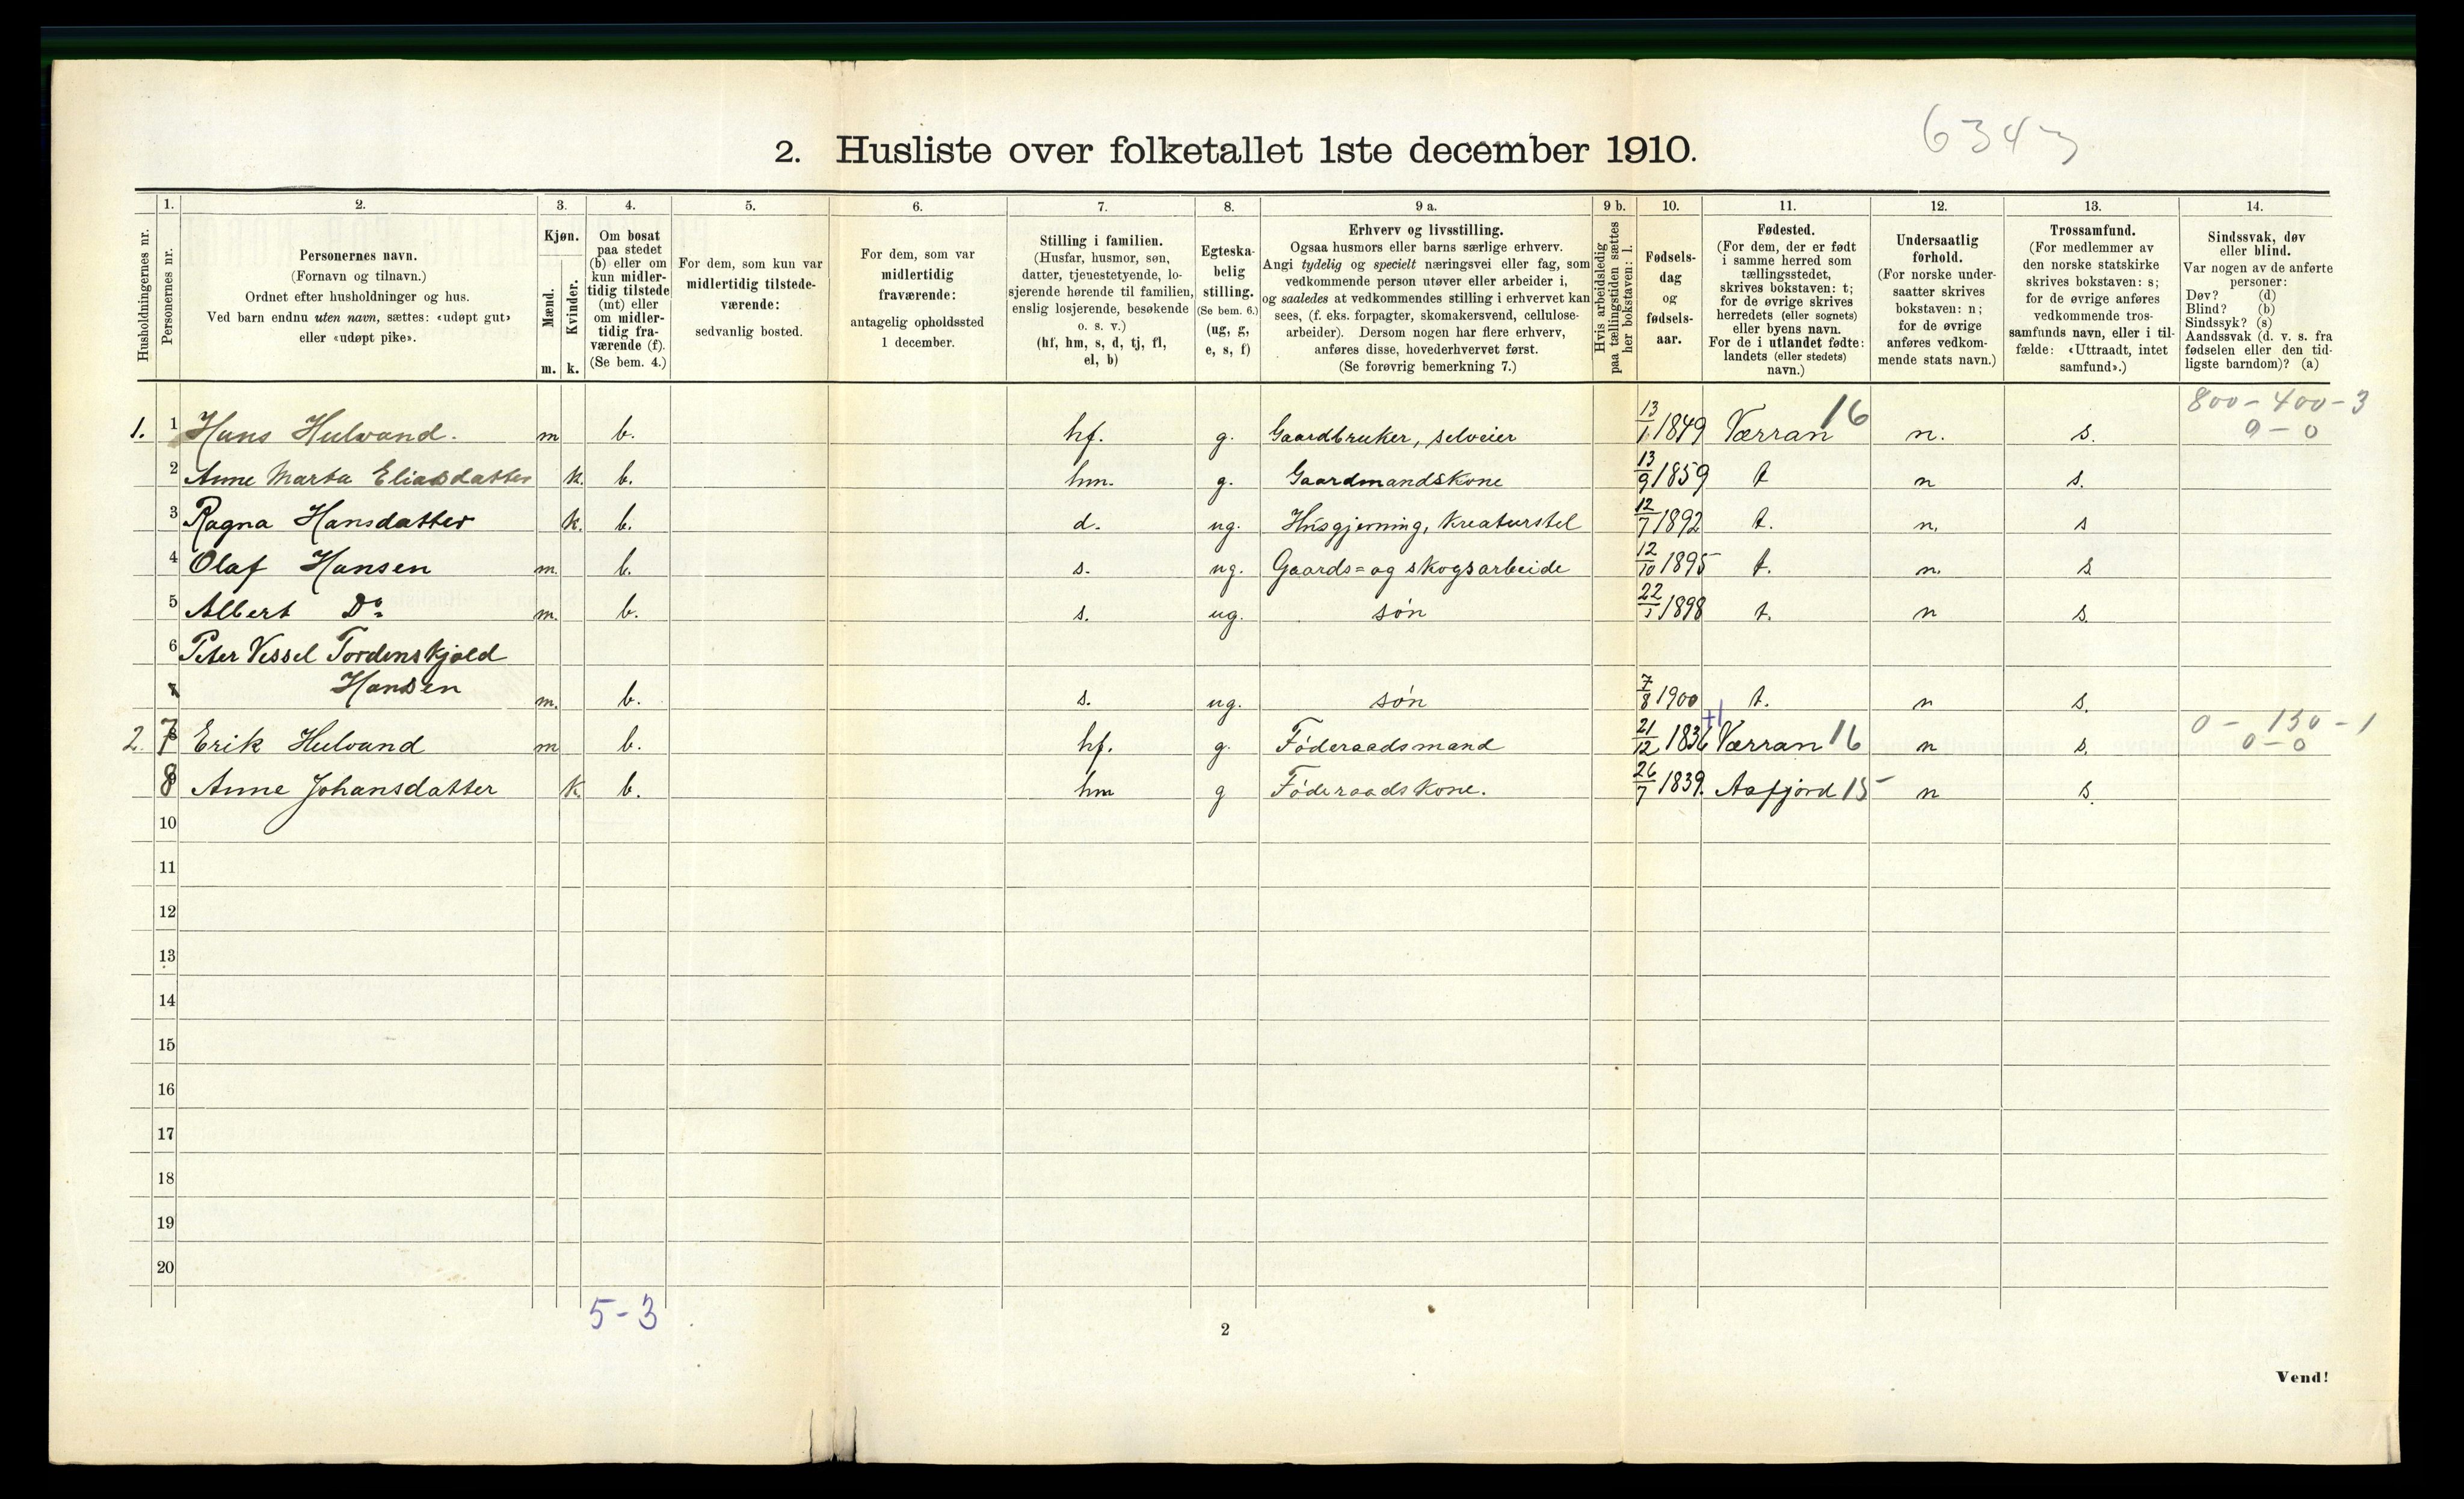 6343
2. Husliste over folketallet 1ste december 1910.
Husholdningernes nr.
1. Personernes nr.
2. Personernes navn.
(Fornavn og tilnavn.)
Ordnet efter husholdninger og hus.
Ved barn endnu uten navn, sættes: «udøpt gut»
eller «udøpt pike».
3. Kjøn.
Mænd. Kvinder.
m. k.
4. Om bosat
paa stedet
(b) eller om
kun midler-
tidig tilstede
(mt) eller
om midler-
tidig fra-
værende (f).
(Se bem. 4.)
5. For dem, som kun var
midlertidig tilstede-
værende:
sedvanlig bosted.
6. For dem, som var
midlertidig
fraværende:
antagelig opholdssted
1 december.
7. Stilling i familien.
(Husfar, husmor, søn,
datter, tjenestetyende, lo-
sjerende hørende til familien,
enslig losjerende, besøkende
o. s. v.)
(hf, hm, s, d, tj, fl,
el, b)
8. Egteska-
belig
stilling.
(Se bem. 6.)
(ug, g,
e, s, f)
9 a. Erhverv og livsstilling.
Ogsaa husmors eller barns særlige erhverv.
Angi tydelig og specielt næringsvei eller fag, som
vedkommende person utøver eller arbeider i,
og saaledes at vedkommendes stilling i erhvervet kan
sees, (f. eks. forpagter, skomakersvend, cellulose-
arbeider). Dersom nogen har flere erhverv,
anføres disse, hovederhvervet først.
(Se forøvrig bemerkning 7.)
9 b. Hvis arbeidsledig
paa tællingstiden sættes
her bokstaven: l.
10. Fødsels-
dag
og
fødsels-
aar.
11. Fødested.
(For dem, der er født
i samme herred som
tællingsstedet,
skrives bokstaven: t;
for de øvrige skrives
herredets (eller sognets)
eller byens navn.
For de i utlandet fødte:
landets (eller stedets)
navn.)
12. Undersaatlig
forhold.
(For norske under-
saatter skrives
bokstaven: n;
for de øvrige
anføres vedkom-
mende stats navn.)
13. Trossamfund.
(For medlemmer av
den norske statskirke
skrives bokstaven: s;
for de øvrige anføres
vedkommende tros-
samfunds navn, eller i til-
fælde: «Uttraadt, intet
samfund».)
14. Sindssvak, døv
eller blind.
Var nogen av de anførte
personer:
Døv? (d)
Blind? (b)
Sindssyk? (s)
Aandssvak (d. v. s. fra
fødselen eller den tid-
ligste barndom)? (a)
800 - 400 - 3
1. 1 Hans Hulvand. m b. hf. g. Gaardbruker, selveier 13/1 1849 Værran 16 n. s. 9 - 0
2 Anne Marta Eliasdatter k. b. hm. g. Gaardmandskone 13/9 1859 t n s.
3 Ragna Hansdatter k. b. d. ug. Husgjerning, kreaturstel 12/7 1892 t. n. s
4 Olaf Hansen m. b. s. ug. Gaards= og skogsarbeide 12/10 1895 t. n. s
5 Albert Do m. b. s. ug. søn 22/1 1898 t. n s.
6 Peter Vessel Tordenskjold
Hansen m. b. s. ug. søn 7/8 1900 t. n s.
+1 0 - 150 - 1
2. 7 Erik Hulvand m b. hf. g. Føderaadsmand 21/12 1836 Værran 16 n s. 0 - 0
8 Anne Johansdatter k. b. hm g Føderaadskone. 26/7 1839. Aafjord 15 n s.
10
11
12
13
14
15
16
17
18
19
20
5 - 3
2
Vend!